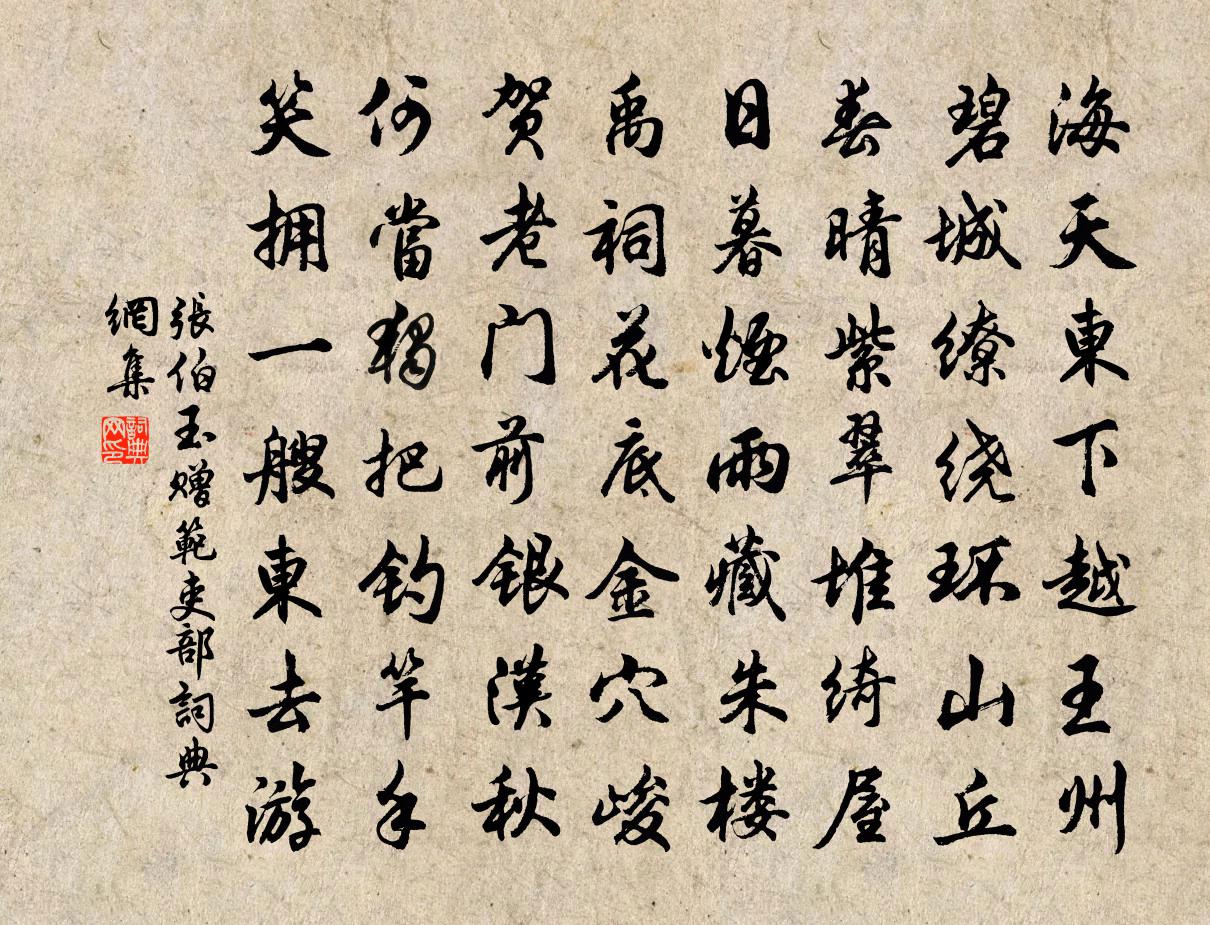 海天東下越王州
碧城缭绕环山丘
春晴紫翠堆绮屋
日暮煙雨藏朱楼
禹祠花底金穴峻
贺老门前银漢秋
何當獨把钓竿手
笑拥一艘東去游
張伯玉赠範吏部詞典
網集
詞典
网印